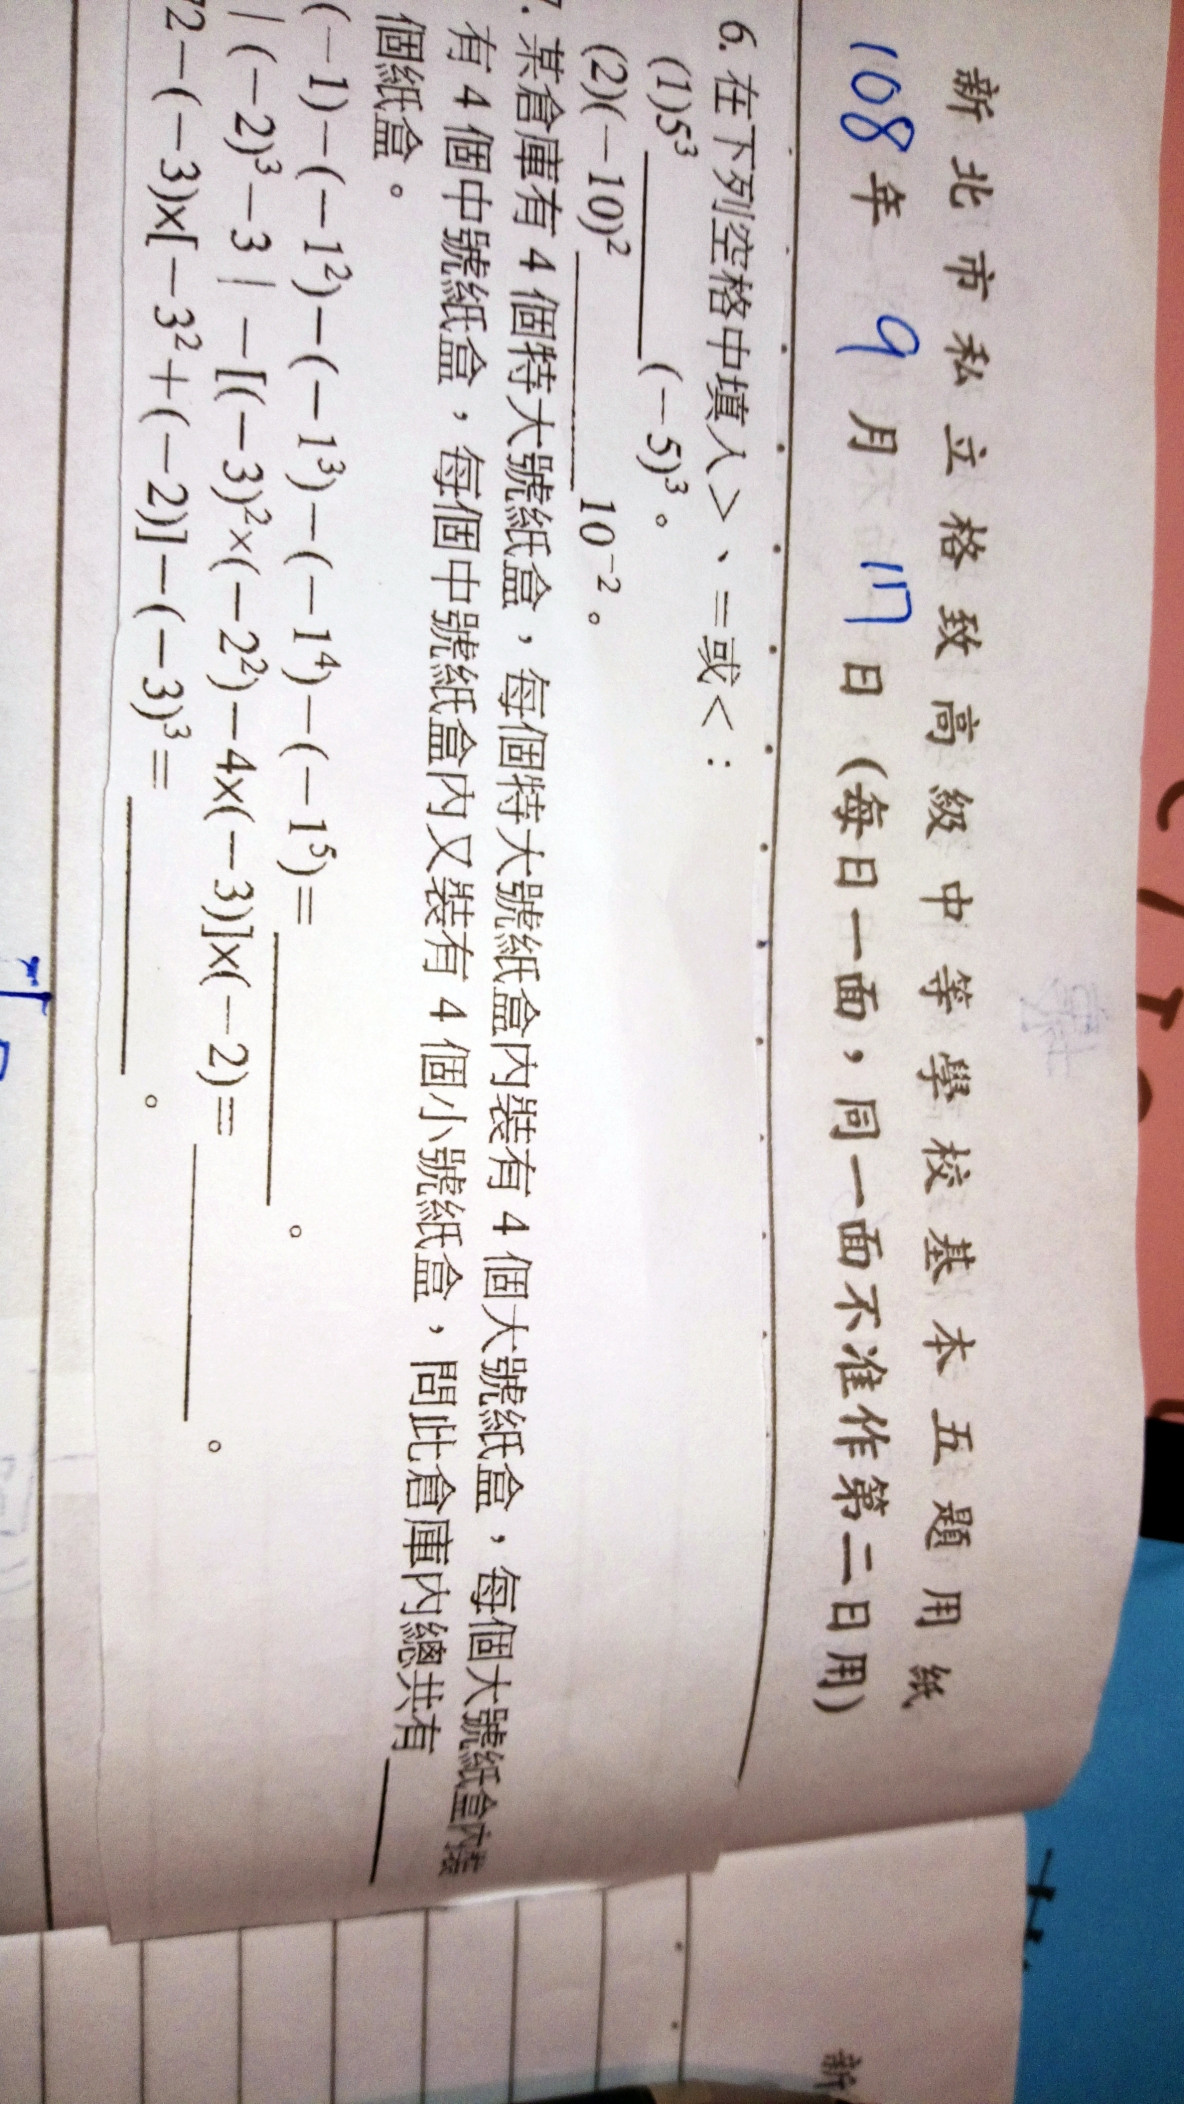 新北市私立格致高級中等學校基本五題用紙
108年9月17日(每日一面,同一面不准作第二日用)
6. 在下列空格中填入>、=或<:
(1)5³______(−5)³。
(2)(−10)²______10⁻²。
7. 某倉庫有4個特大號紙盒,每個特大號紙盒內裝有4個大號紙盒,每個大號紙盒內裝
有4個中號紙盒,每個中號紙盒內又裝有4個小號紙盒,問此倉庫內總共有______
個紙盒。
(−1)−(−1²)−(−1³)−(−1⁴)−(−1⁵)=______。
|(−2)³−3|−[(−3)²×(−2²)−4×(−3)]×(−2)=______。
72−(−3)×[−3²+(−2)]−(−3)³=______。
新